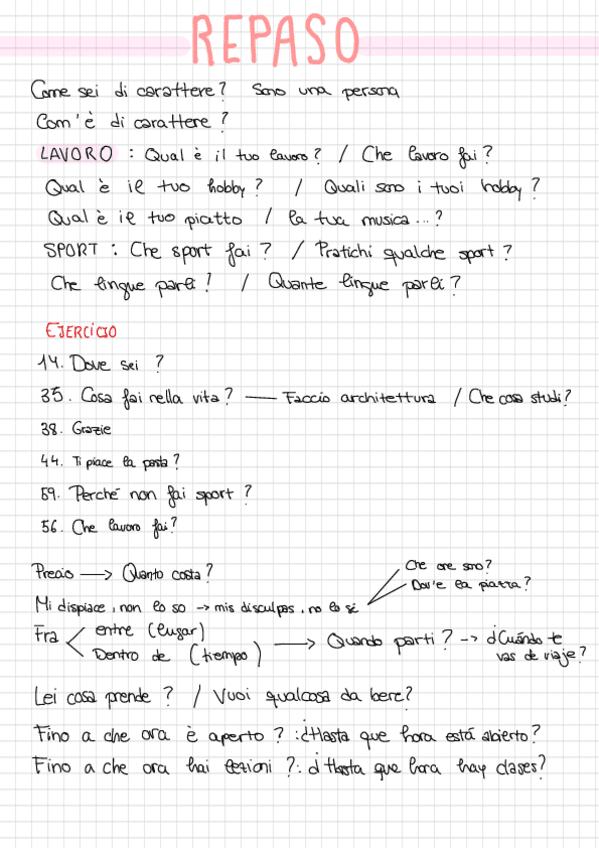 REPASO
Come sei di carattere? Sono una persona
Com'è di carattere?
LAVORO : Qual è il tuo lavoro? / Che lavoro fai?
Qual è il tuo hobby? / Quali sono i tuoi hobby?
Qual è il tuo piatto / la tua musica...?
SPORT : Che sport fai? / Pratichi qualche sport?
Che lingue parli! / Quante lingue parli?
EJERCICIO
14. Dove sei ?
35. Cosa fai nella vita? — Faccio architettura / Che cosa studi?
38. Grazie
44. Ti piace la pasta?
59. Perché non fai sport?
56. Che lavoro fai?
Precio → Quanto costa?
Che ore sono?
Dov'e la piazza?
Mi dispiace, non lo so → mis disculpas, no lo sé
Fra
entre (lugar)
Dentro de (tiempo)
→ Quando parti? → ¿Cuándo te
vas de viaje?
Lei cosa prende ? / Vuoi qualcosa da bere?
Fino a che ora è aperto ? : ¿Hasta que hora está abierto?
Fino a che ora hai lezioni ? : ¿Hasta que hora hay clases?